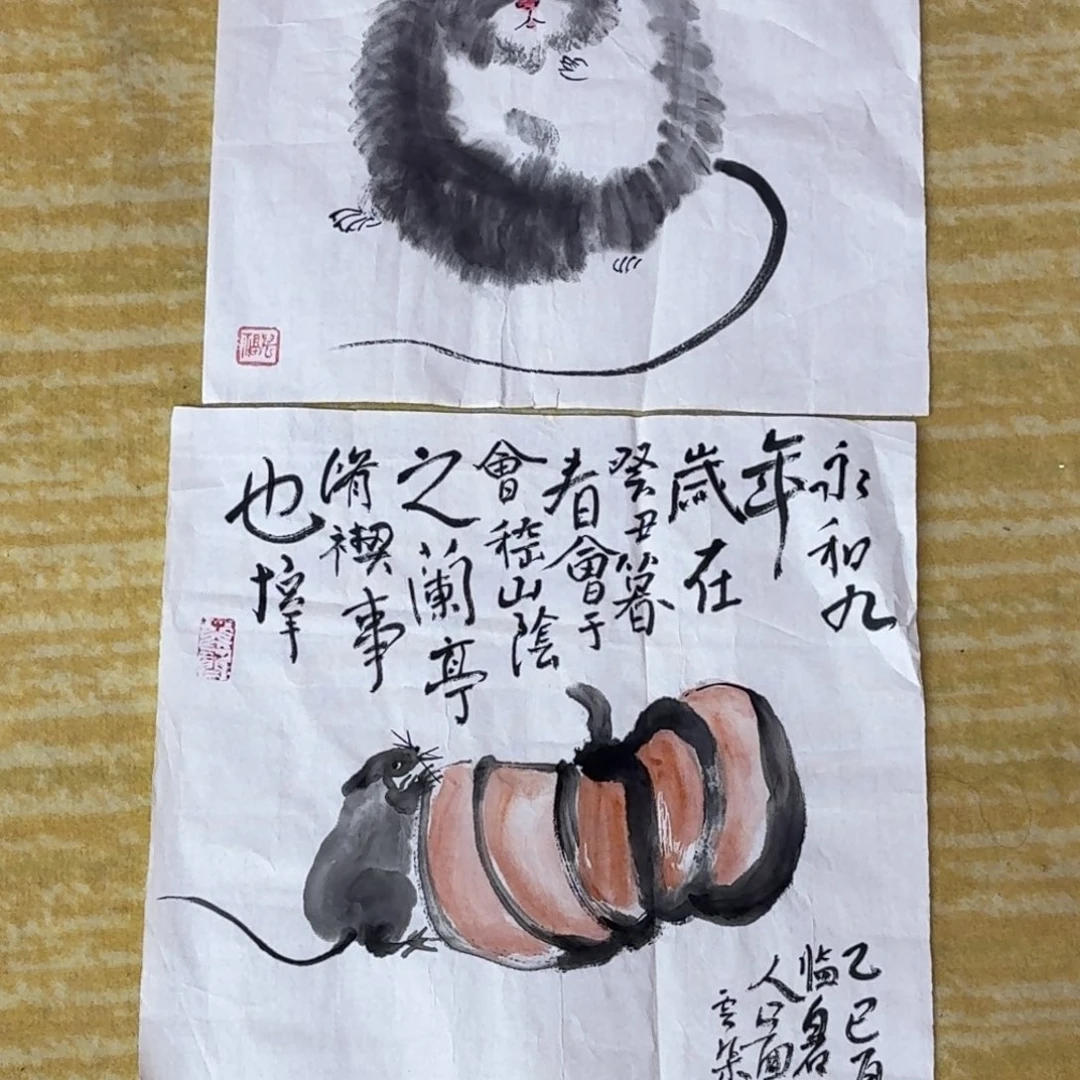 永和九
年
歲在
癸丑暮
春會于
會稽山陰
之蘭亭
脩禊事
也
乙巳
临
人